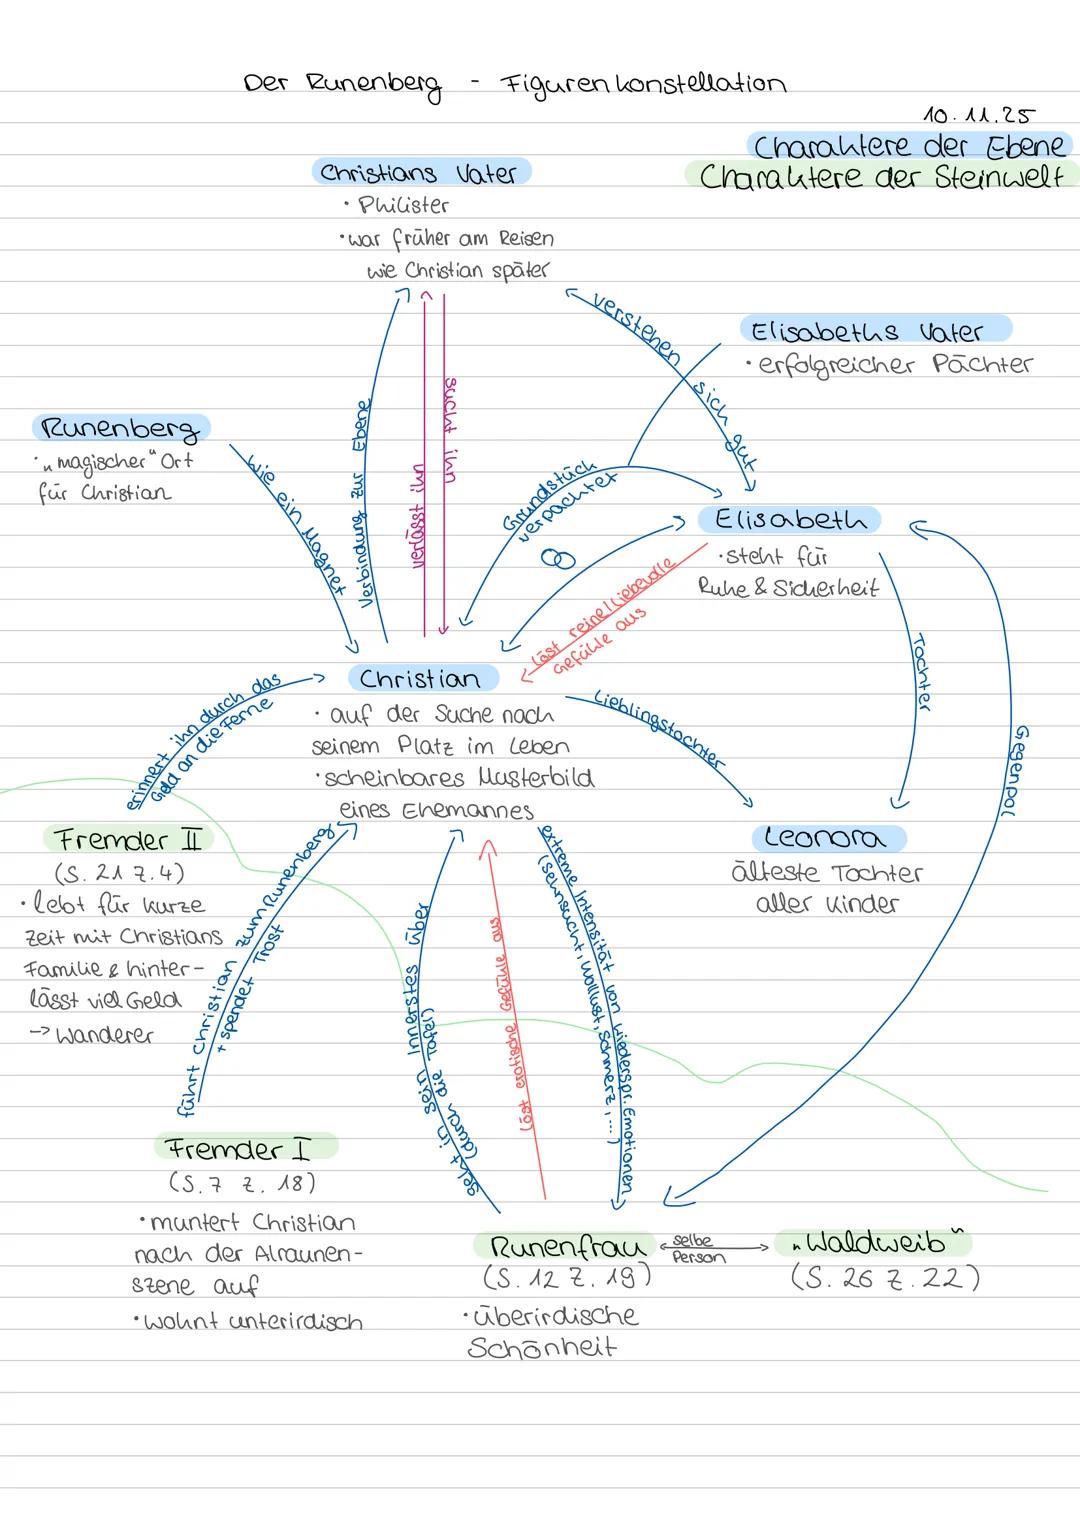 Der Runenberg - Figurenkonstellation
10.11.25
Charaktere der Ebene
Charaktere der Steinwelt
Christians Vater
• Philister
• war früher am Reisen
wie Christian später
verstehen sich gut
Elisabeths Vater
• erfolgreicher Pächter
Runenberg
• „magischer“ Ort
für Christian
wie ein Magnet
Verbindung zur Ebene
verlässt ihn
sucht ihn
Grundstück
verpachtet
Elisabeth
• steht für
Ruhe & Sicherheit
löst reine/liebevolle
Gefühle aus
Tochter
Gegenpol
Christian
• auf der Suche nach
seinem Platz im Leben
• scheinbares Musterbild
eines Ehemannes
Lieblingstochter
erinnert ihn durch das
Geld an die Ferne
Fremder II
(S. 21 Z. 4)
• lebt für kurze
Zeit mit Christians
Familie & hinter-
lässt viel Geld
-> Wanderer
Leonora
älteste Tochter
aller Kinder
führt Christian zum Runenberg
+ spendet Trost
geht in sein Innerstes über
(durch die Tafel)
löst erotische Gefühle aus
extreme Intensität von wiederspr. Emotionen
(Sehnsucht, Wollust, Schmerz, ...)
Fremder I
(S. 7 Z. 18)
• muntert Christian
nach der Alraunen-
szene auf
• wohnt unterirdisch
Runenfrau
(S. 12 Z. 19)
• überirdische
Schönheit
selbe
Person
„Waldweib“
(S. 26 Z. 22)